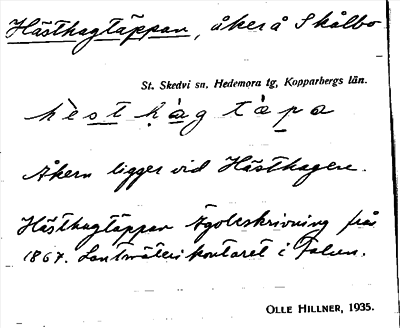 Hästhagtäppan, åker å Skålbo
St. Skedvi sn, Hedemora tg, Kopparbergs län.
hèsthàgtàpa
Åkern ligger vid Hästhagen.
Hästhagtäppan Ägobeskrivning från
1867. Lantmäterikontoret i Falun.
OLLE HILLNER, 1935.